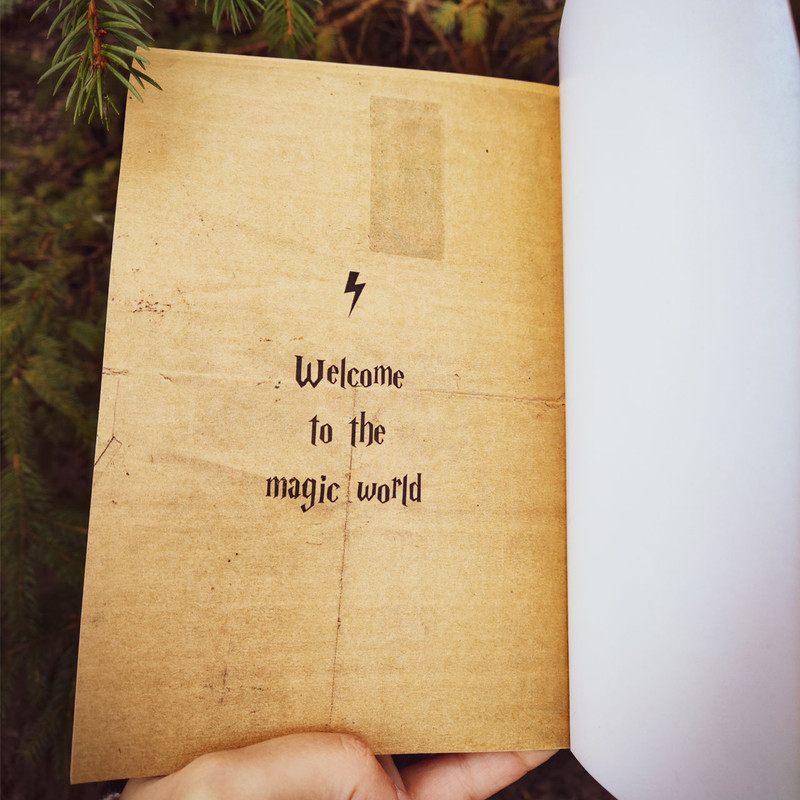 Welcome
to the
magic world